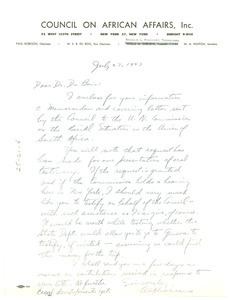 COUNCIL ON AFRICAN AFFAIRS, Inc.
23 WEST 26TH STREET • NEW YORK 10, NEW YORK
PAUL ROBESON, Chairman W. E. B. DU BOIS, Vice Chairman W. A. HUNTON, Secretary
July 27, 1953
Dear Dr. Du Bois:
I enclose for your information
a Memorandum and covering letter sent
by the Council to the U.N. Commission
on the Racial Situation in the Union of
South Africa.
You will note that request has
been made for our presentation of oral
testimony. If the request is granted
and if the commission holds a hearing
here in New York, I should very much
like you to testify on behalf of the Council
with such assistance as I can give, of course.
It would be worth while testing whether the
State Dept would allow you to go to Geneva to
testify, if invited — assuming we could find
the money for the trip.
I shall send you in a few days a
memo on
Sincerely,
Alphaeus